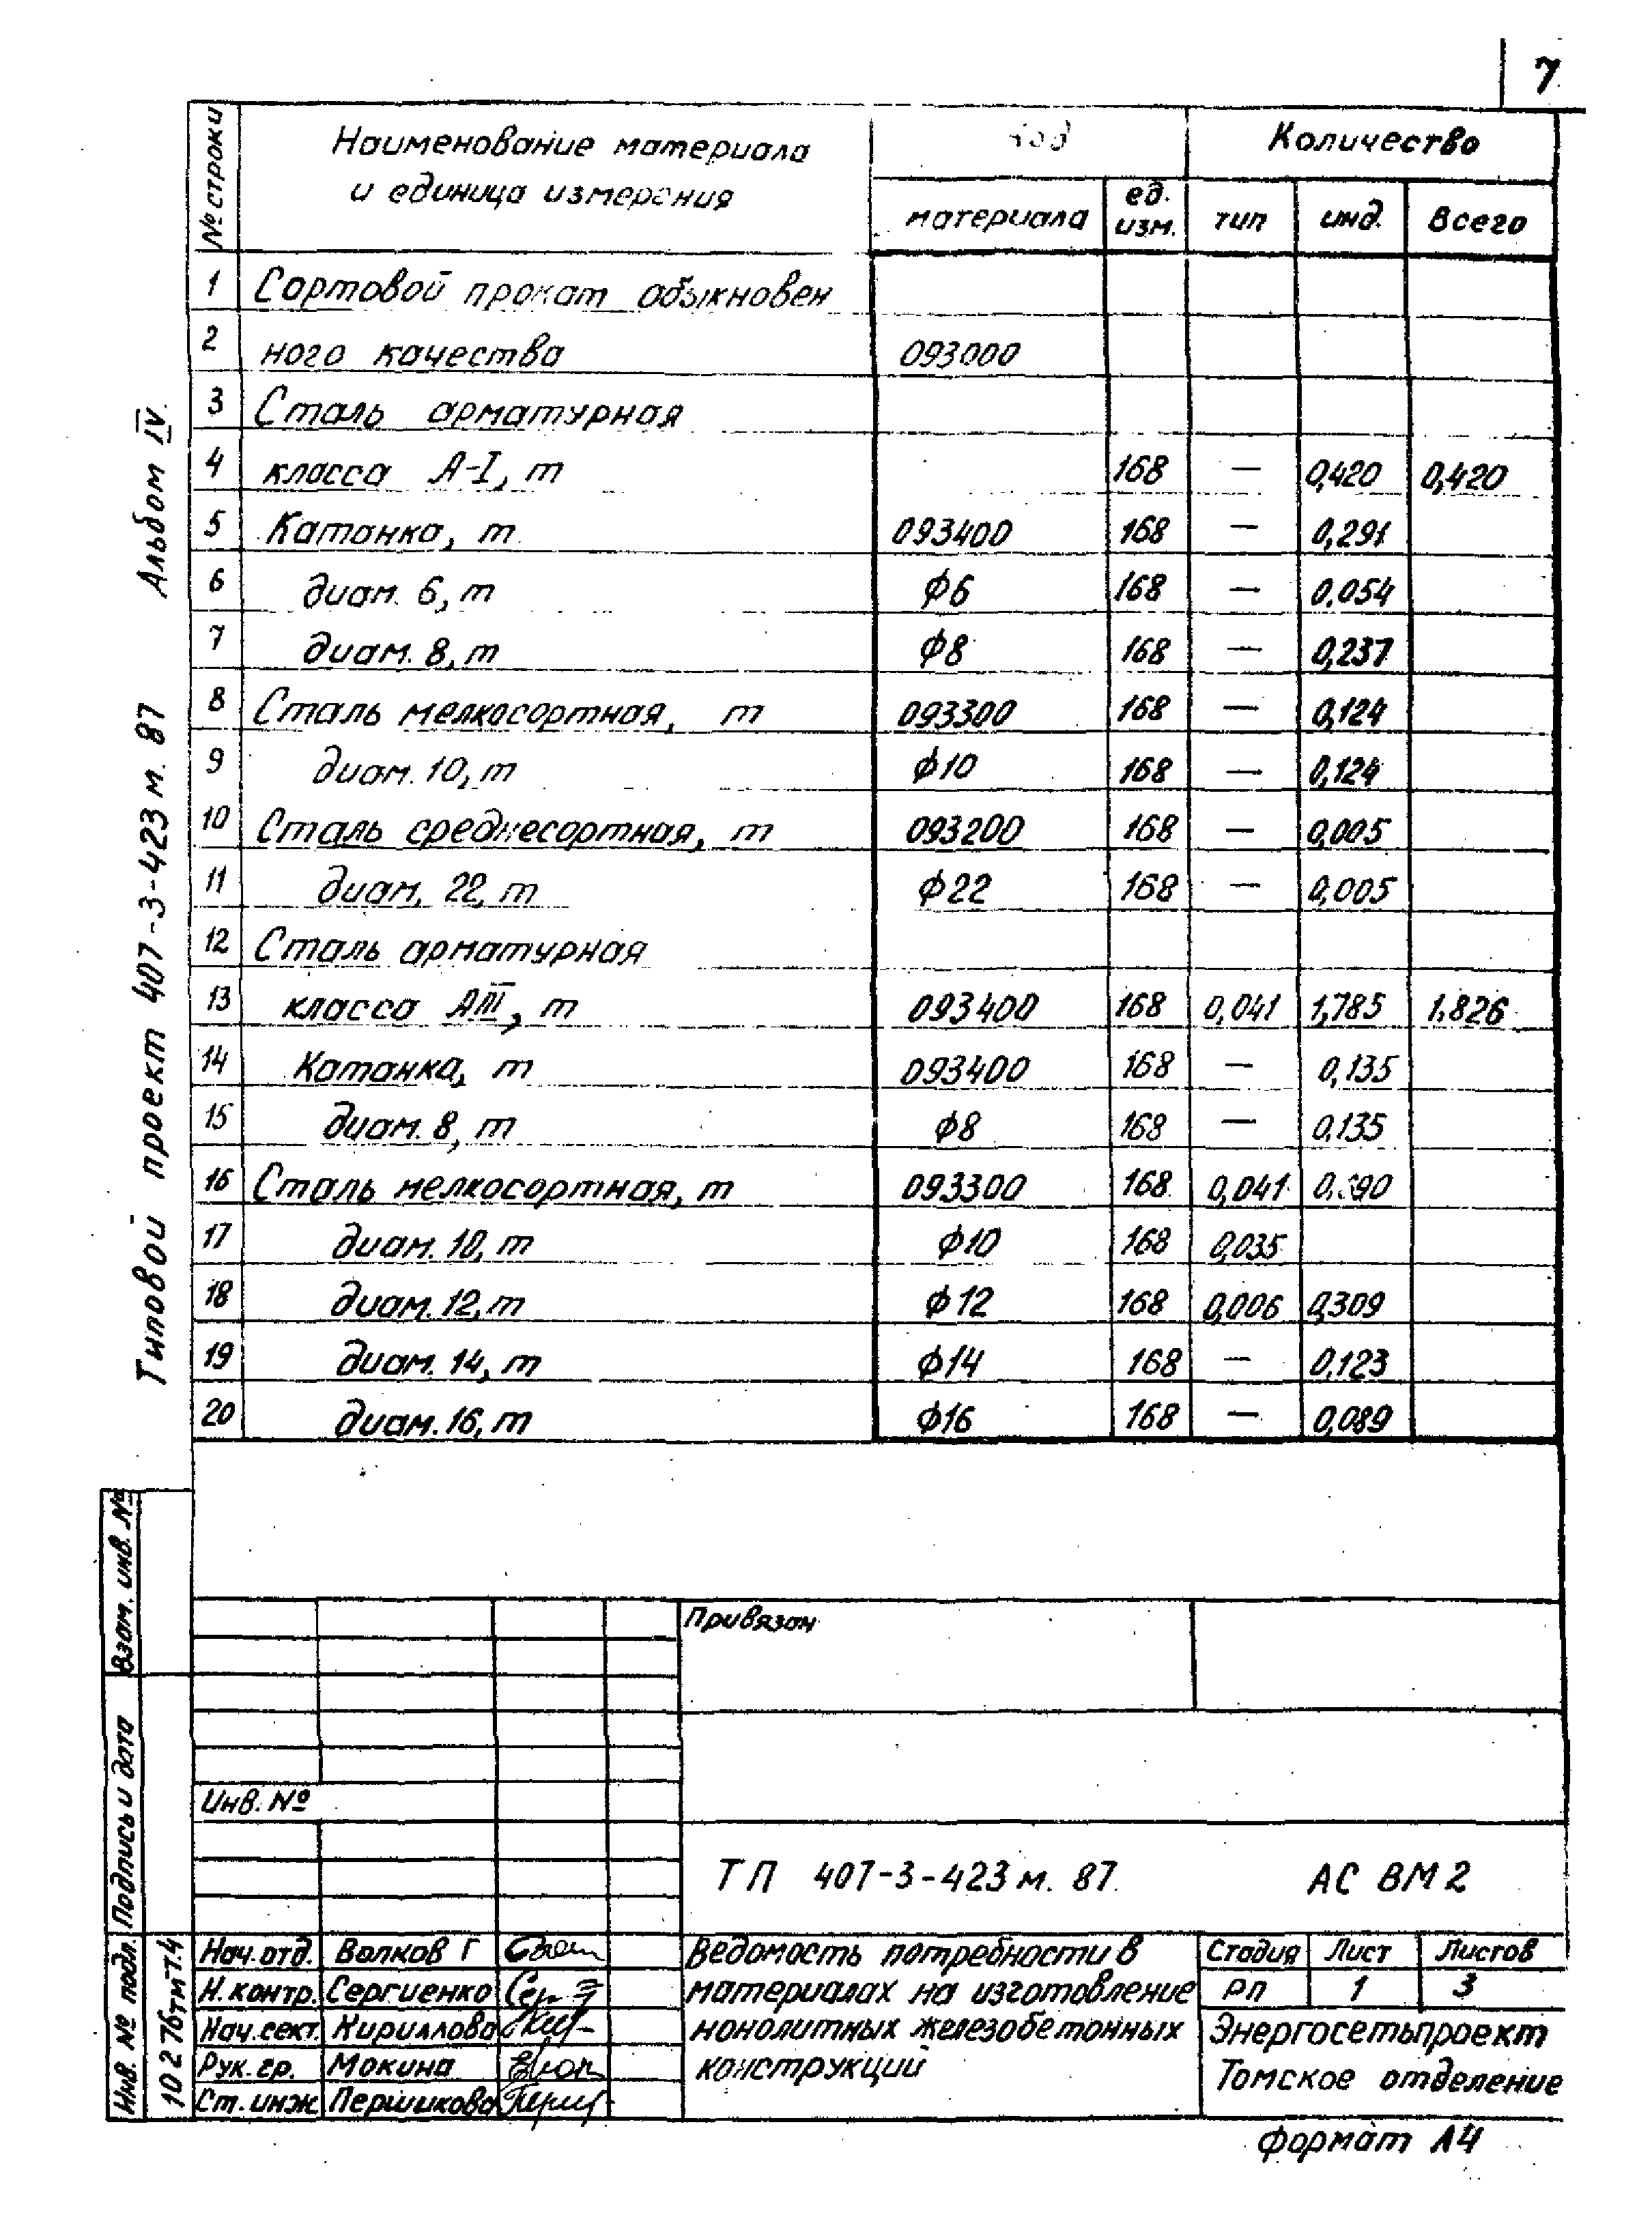 7
№ строки
Наименование материала
и единица измерения
Код
Количество
материала
ед.
изм.
тип
инд.
Всего
1 Сортовой прокат обыкновен
2 ного качества 093000
3 Сталь арматурная
4 класса А-I, т 168 — 0,420 0,420
5 Катанка, т 093400 168 — 0,291
6 диам. 6, т ф6 168 — 0,054
7 диам. 8, т ф8 168 — 0,237
8 Сталь мелкосортная, т 093300 168 — 0,124
9 диам. 10, т ф10 168 — 0,124
10 Сталь среднесортная, т 093200 168 — 0,005
11 диам. 22, т ф22 168 — 0,005
12 Сталь арматурная
13 класса АIII, т 093400 168 0,041 1,785 1,826
14 Катанка, т 093400 168 — 0,135
15 диам. 8, т ф8 168 — 0,135
16 Сталь мелкосортная, т 093300 168 0,041
17 диам. 10, т ф10 168 0,035
18 диам. 12, т ф12 168 0,006 0,309
19 диам. 14, т ф14 168 — 0,123
20 диам. 16, т ф16 168 — 0,089
Типовой проект 407-3-423м. 87 Альбом IV
Взам. инв. №
Подпись и дата
Инв. № подл.
10276тм-т.4
Привязан
Инв. №
ТП 407-3-423м. 87. АС ВМ2
Нач. отд. Волков Г
Н. контр. Сергиенко
Нач. сект. Кириллова
Рук. гр. Мокина
Ст. инж Першикова
Ведомость потребности в
материалах на изготовление
монолитных железобетонных
конструкций
Стадия Лист Листов
РП 1 3
Энергосетьпроект
Томское отделение
формат А4